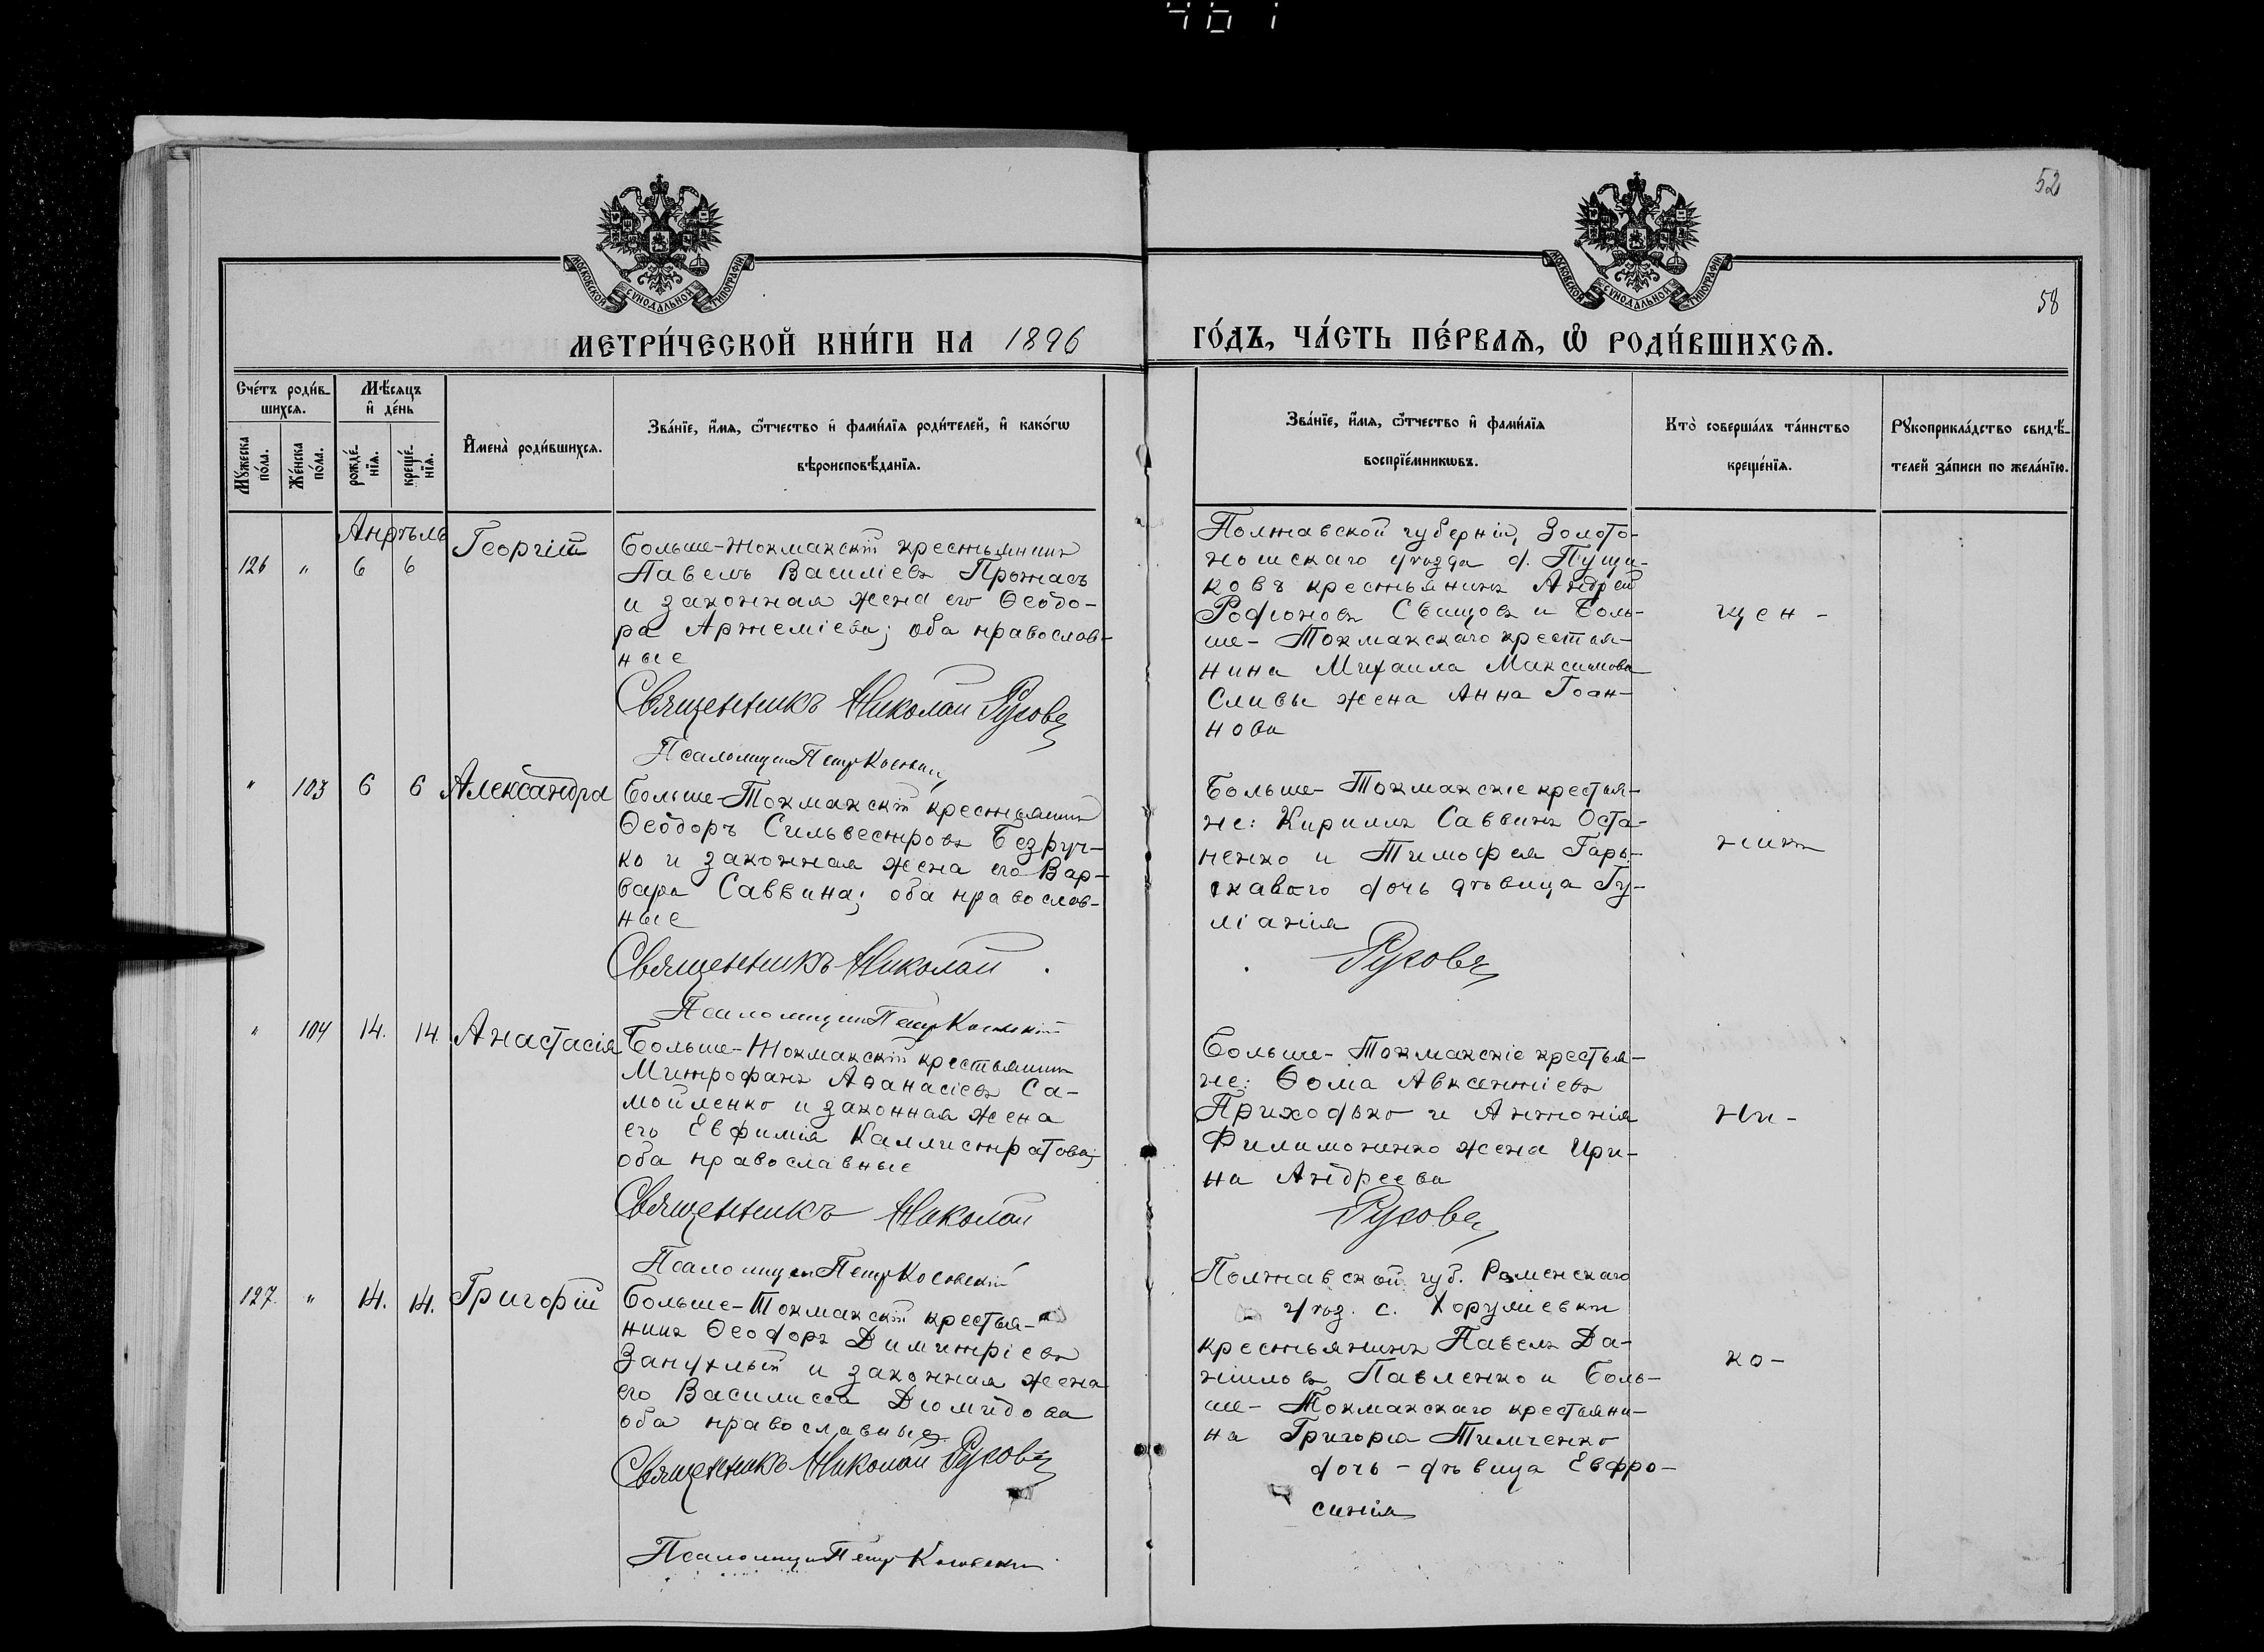 461
52
58
МОСКОВСКОЙ СѴНОДАЛЬНОЙ ТИПОГРАФІИ
МОСКОВСКОЙ СѴНОДАЛЬНОЙ ТИПОГРАФІИ
МЕТРИ́ЧЕСКОЙ КНИ́ГИ НА 1896
ГО́ДЪ, ЧА́СТЬ ПЕ́РВАѦ, Ѡ҆ РОДИ́ВШИХСѦ.
Сче́тъ роди́в-
шихсѧ.
Мꙋ́жеска
по́ла.
Же́нска
по́ла.
Мѣ́сѧцъ
и҆ де́нь
рожде́-
нїѧ.
креще́-
нїѧ.
И҆мена̀ роди́вшихсѧ.
Зва́нїе, и҆́мѧ, ѻ҆́тчество и҆ фами́лїѧ роди́телей, и҆ како́гѡ
вѣроисповѣ́данїѧ.
Зва́нїе, и҆́мѧ, ѻ҆́тчество и҆ фами́лїѧ
воспрїе́мникѡвъ.
Кто̀ соверша́лъ та́инство
креще́нїѧ.
Рꙋкоприкла́дство свидѣ́-
телей за́писи по жела́нїю.
Апрѣль
126 " 6 6 Георгій
Больше-Токмакскій крестьянинъ
Павелъ Василіевъ Протасъ
и законная жена его Ѳеодо-
ра Артеміева; оба православ-
ные
Священникъ Николай Русовъ
Псаломщикъ Петръ Косовскій
Полтавской губерніи, Золото-
ношскаго уѣзда д. Пущи-
ковъ крестьянинъ Андрей
Родіоновъ Свищовъ и Боль-
ше-Токмакскаго крестья-
нина Михаила Максимова
Сливы жена Анна Іоан-
нова
щен-
" 103 6 6 Александра
Больше-Токмакскій крестьянинъ
Ѳеодоръ Сильвестровъ Безруч-
ко и законная жена его Вар-
вара Саввина; оба православ-
ные
Священникъ Николай
Псаломщикъ Петръ Косовскій
Больше-Токмакскіе крестья-
не: Кириллъ Саввинъ Оста-
пенко и Тимофея Гарь-
каваго дочь дѣвица Іу-
ліанія
Русовъ
никъ
" 104 14. 14. Анастасія
Больше-Токмакскій крестьянинъ
Митрофанъ Аѳанасіевъ Са-
мойленко и законная жена
его Евфимія Каллистратова;
оба православные
Священникъ Николай
Псаломщикъ Петръ Косовскій
Больше-Токмакскіе крестья-
не: Ѳома Авксентіевъ
Приходько и Антонія
Филимоненко жена Ири-
на Андреева
Русовъ
Ни-
127. " 14. 14. Григорій
Больше-Токмакскій крестья-
нинъ Ѳеодоръ Димитріевъ
Запухлый и законная жена
его Василисса Діомидова
оба православные
Священникъ Николай Русовъ
Псаломщикъ Петръ Косовскій
Полтавской губ. Роменскаго
уѣз. с.
крестьянинъ Павелъ Да-
ніиловъ Павленко и Боль-
ше-Токмакскаго крестьяни-
на Григорія Тимченко
дочь-дѣвица Евфро-
синія
ко-